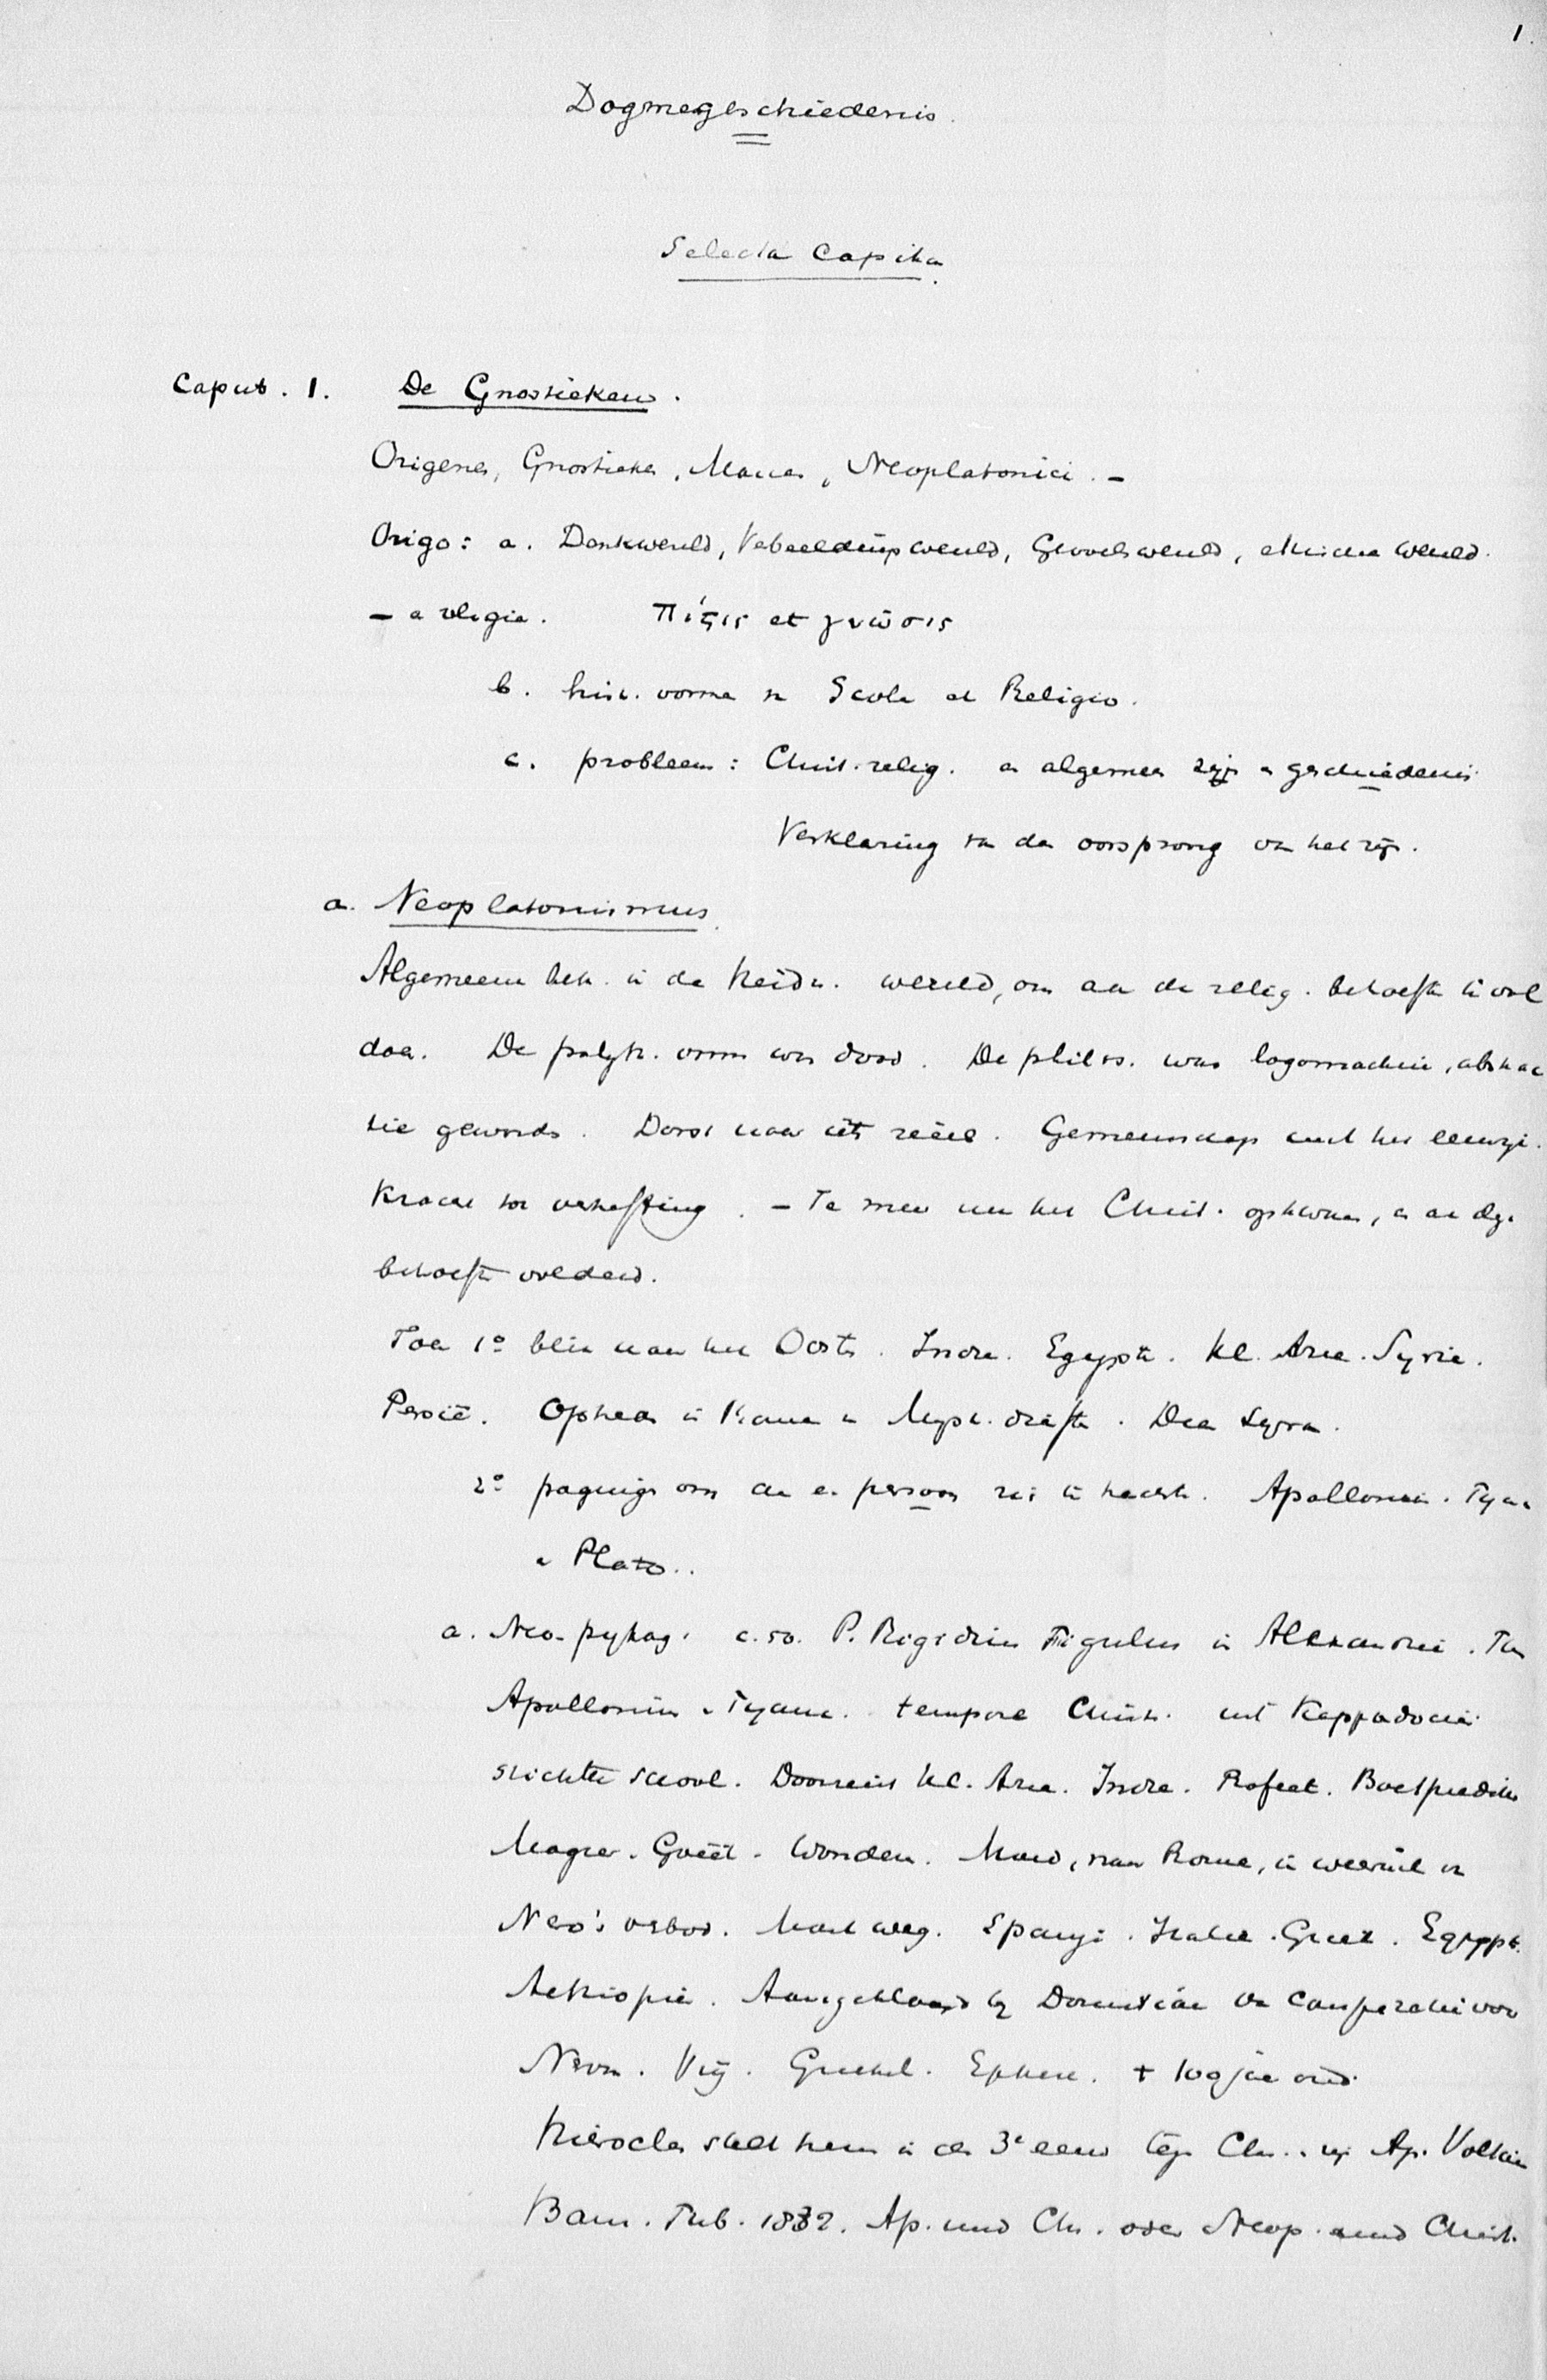 1.
Dogmegeschiedenis.
Selecta Capita.
Caput. 1. De Gnostieken.
Origenes, Gnostieken, Manes, Neoplatonici. –
Origo: a. Denkwereld, Verbeeldingswereld, Gevoelswereld, ethische wereld.
– a religie. Πίςις et γνῶσις
b. hist. vorme Scola et Religio.
c. probleem: Christ. relig. en algemeen zijn en geschiedenis
Verklaring van den oorsprong van het zijn.
a. Neoplatonismus.
Algemeen in de heidn. wereld, om aan de relig. behoefte te vol
doen. De polyth. vorm was dood. De philos. was logomachie, abstrac
tie geworden. Dorst naar iets reëel. Gemeenschap met het eeuwige.
Kracht tot verheffing. – Te meer nu het Christ. opkwam, en aan deze
behoefte voldeed.
Toen 1º blik naar het Oosten. Indië. Egypte. Kl. Azië. Syrië.
Persië. Opkomen in Rome Myst. Dea Syra.
2º poging om aan een persoon zich te hechten. Apollonius. Tyana
en Plato..
a. Neo-pythag. c. 50. P. Nigidius Figulus in Alexandrië.
Apollonius v. Tyana. tempore Christi. uit Kappadocië
stichtte school. Doorreist Kl. Azië. Indië. Profeet. Boetprediker
Magier. Goëet. Wonderen. naar Rome, in weerwil van
Nero's verbod. Moest weg. Spanje. Italië. Griek. Egypte.
Aethiopië. Aangeklaagd bij Domitiaan van conspiratie voor
Nerva. Vrij. Griekenl. Ephese. † 100 jaar oud.
Hierocles stelt hem in de 3e eeuw tegen Chr. Ap. Voltaire
Baur. Tub. 1832. Ap. und Chr. oder Neop. und Christ.